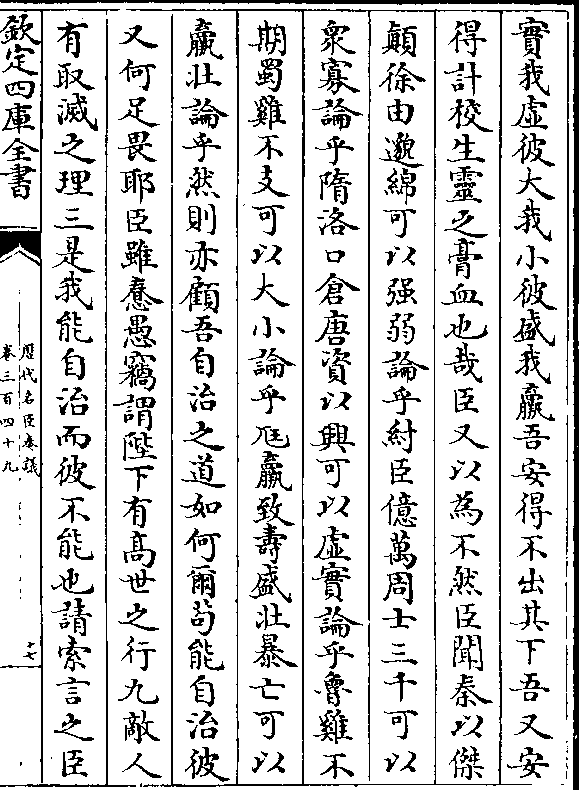 實我虛彼大我小彼盛我羸吾安得不出其下吾又安
得計校生靈之膏血也哉臣又以為不然臣聞秦以傑
顛徐由邈綿可以强弱論乎紂臣億萬周士三千可以
衆寡論乎隋洛口倉唐資以興可以虛實論乎魯雞不
期蜀雞不支可以大小論乎尫羸致壽盛壯暴亡可以
羸壯論乎然則亦顧吾自治之道如何爾茍能自治彼
又何足畏耶臣雖惷愚竊謂陛下有髙世之行九敵人
有取滅之理三是我能自治而彼不能也請索言之臣
欽定四庫全書
歷代名臣奏議
卷三百四十九
十七